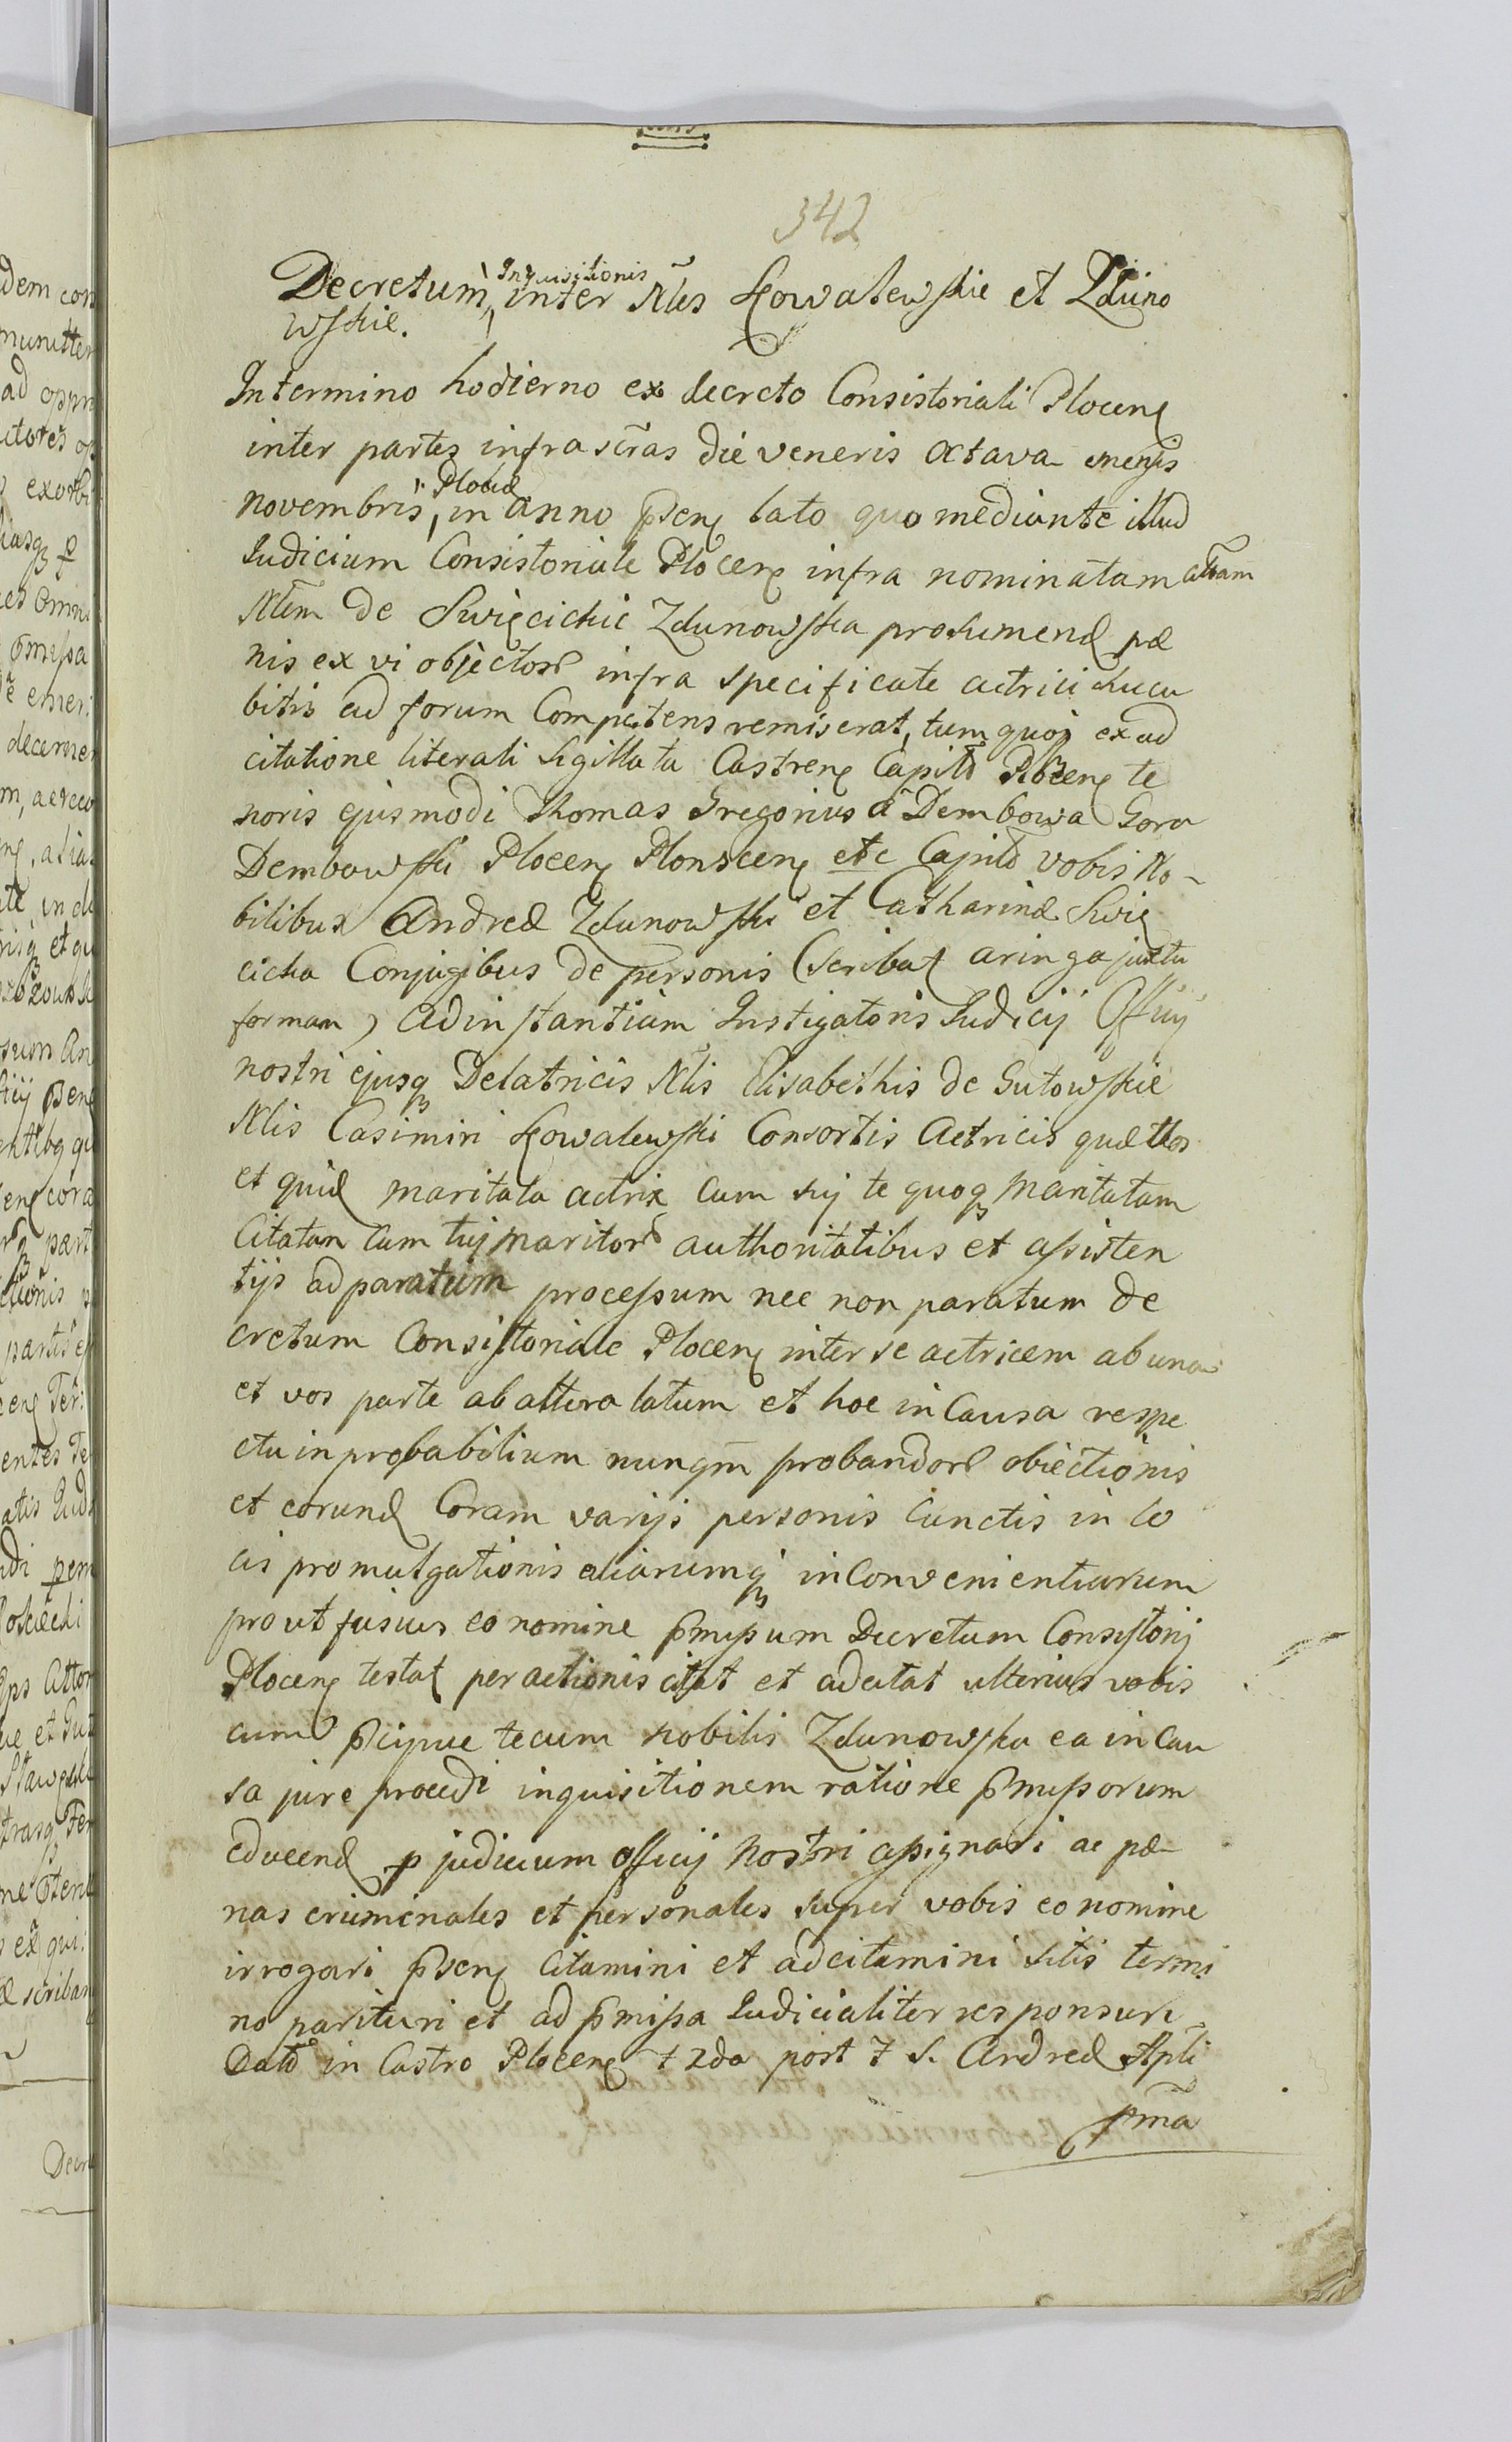 342
Decretum Inquisitionis inter Nles Kowalewskie et Zduno
wskie.
In termino hodierno ex decreto Consistoriali Plocen
inter partes infra scras die veneris octava mensis
novembris, Plociæ in anno psen lato quo mediante illud
Iudicium Consistoriale Plocen infra nominatam citam
Nlem de Swięcickie Zdunowska pro sumend pæ
nis ex vi objector infra specificate actrici lucu
bitis ad forum Competens remiserat, tum quoq ex ad
citatione literali Sigillata Castren Capitl Plocen te
noris ejusmodi Thomas Gregorius a Dembowa Gora
Dembowski Plocen Plonscen etc Capitl vobis No-
bilibus Andreæ Zdunowski et Catharinæ Swię
cicka Conjugibus de personis (scribat aringa juxta
formam) ad instantiam Instigatoris Iudicij Officij
nostri ejusq Delatricis Nlis Elisabethis de Gutowskie
Nlis Casimiri Kowalewski Consortis Actricis quæ Vos
et quid maritata actrix cum sui te quoq Maritatam
Citatam cum tuj maritor authoritatibus et assisten
tijs ad paratum processum nec non paratum de
cretum Consistoriale Plocen inter se actricem ab una
et vos parte ab altera latum et hoc in Causa respe
ctu inprobabilium nunqm probandor obiectionis
et eorund Coram varijs personis cunctis in lo
cis promulgationis aliarumq inconvenientiarum
prout fusius eo nomine pmissum Decretum Consistorij
Plocen testat per actionis citat et adcitat ulterius vobis
cum pcipue tecum nobilis Zdunowska ea in Cau
sa jure procedi inquisitionem ratione pmissorum
educend p judicium officij nostri assignari ac pæ
nas criminales et personales super vobis eo nomine
irrogari psen Citamini et adcitamini sitis termi
no parituri et ad pmissa Iudicialiter responsuri
Datt in Castro Plocen f 2da post f S. Andreæ Apli
pma